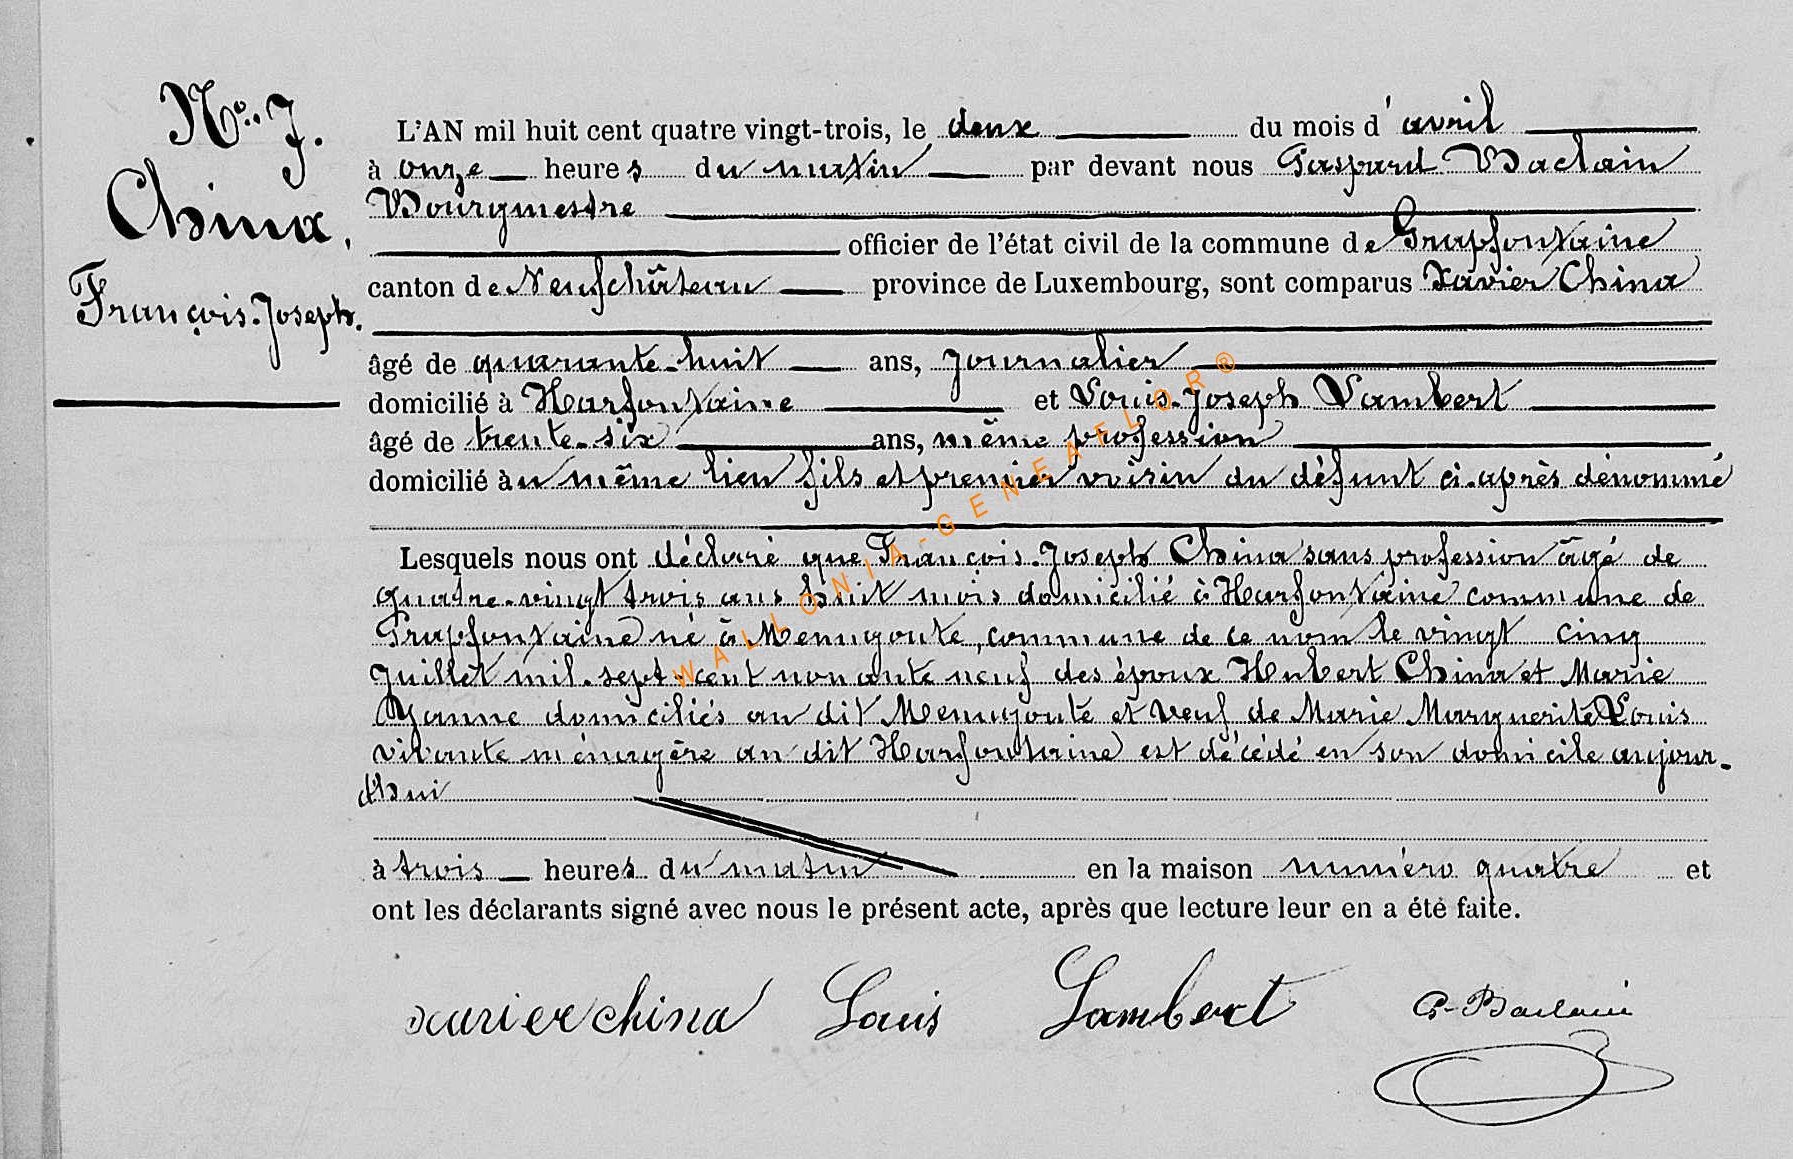 N°. 7.
China,
François-Joseph.
L'AN mil huit cent quatre vingt-trois, le deux du mois d'avril
à onze heures du matin par devant nous Gaspard Baclain
Bourgmestre
officier de l'état civil de la commune de Grapfontaine
canton de Neufchâteau province de Luxembourg, sont comparus Xavier China
âgé de quarante-huit ans, journalier
domicilié à Harfontaine et Louis-Joseph Lambert
âgé de trente-six ans, même profession
domicilié àu même lieu fils et premier voisin du défunt ci-après dénommé
Lesquels nous ont déclaré que François-Joseph China sans profession âgé de
quatre-vingt trois ans huit mois domicilié à Harfontaine commune de
Grapfontaine né à Menugoute, commune de ce nom le vingt cinq
Juillet mil-sept-cent nonante neuf des époux Hubert China et Marie
Yanne domiciliés au dit Menugoute et veuf de Marie Marguerite Louis
vivante ménagère au dit Harfontaine est décédé en son domicile aujour-
d'hui
à trois heures du matin en la maison numéro quatre et
ont les déclarants signé avec nous le présent acte, après que lecture leur en a été faite.
xavier china Louis Lambert G-Baclain
WALLONIA-GENEAFLOR®